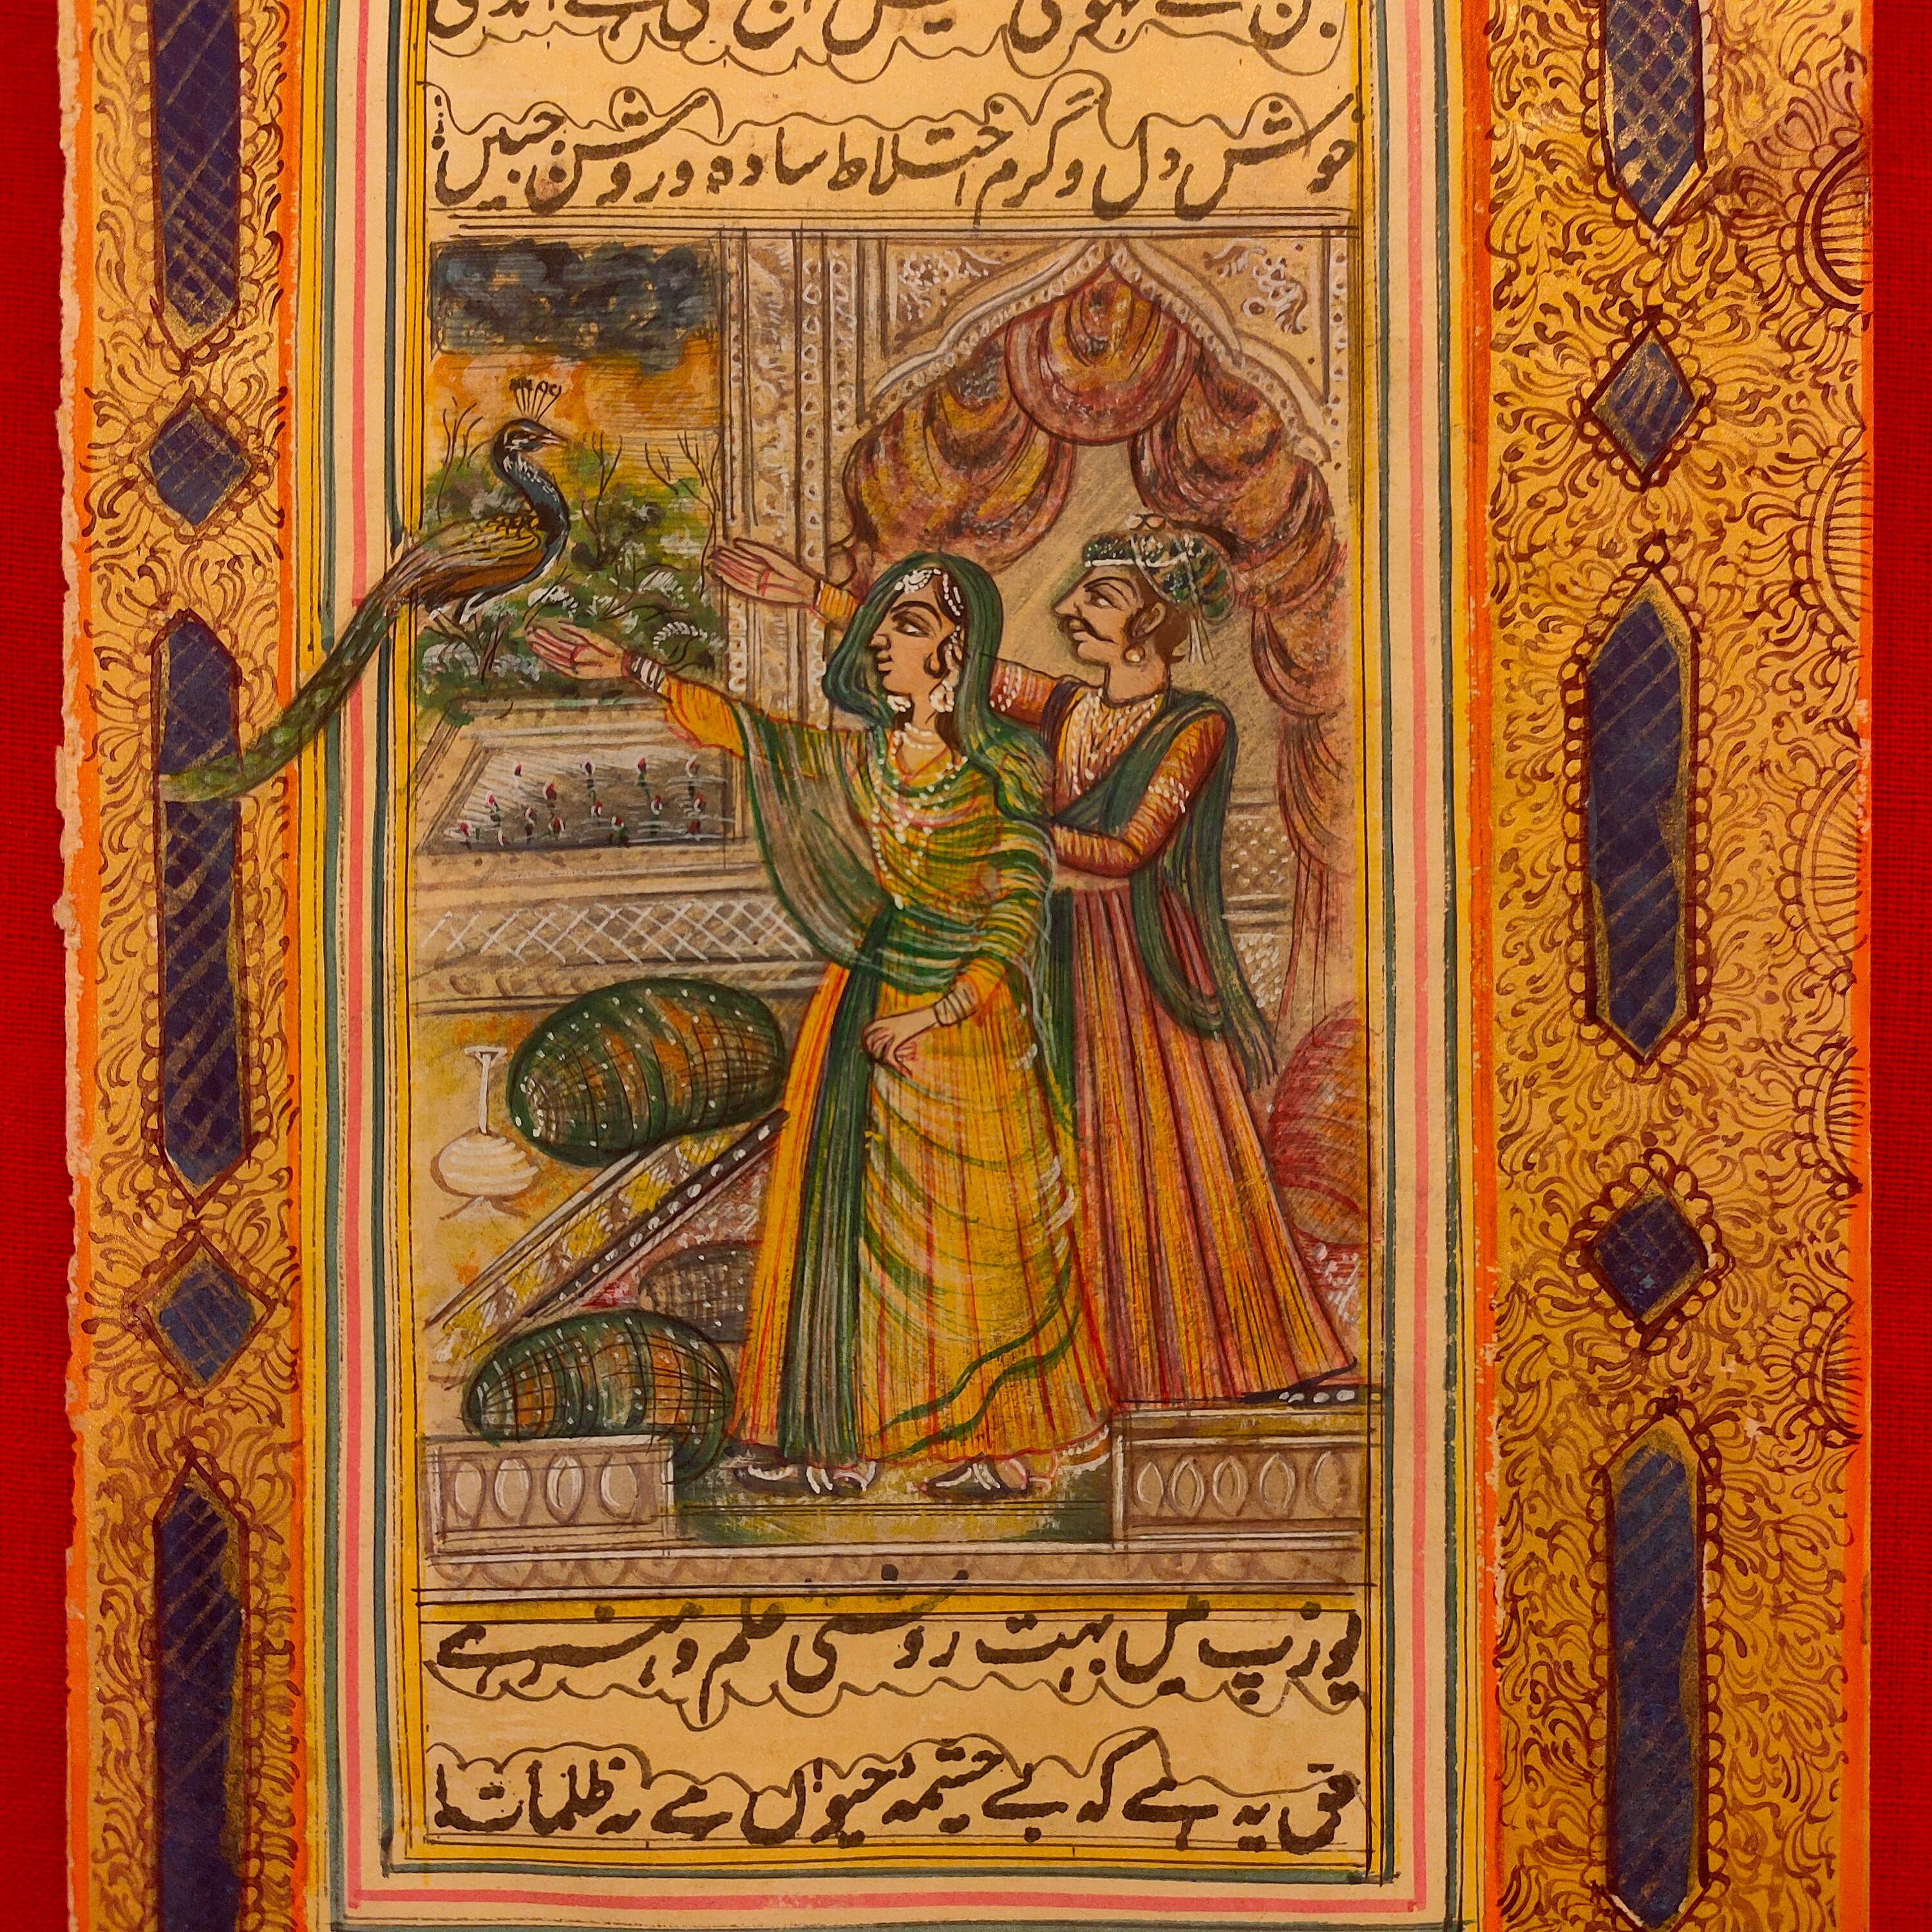 جن کے لہو کی
خوش دل و گرم اختلاط سادہ و روشن جبیں
یورپ میں بہت روشنی علم و ہنر ہے
حق یہ ہے کہ بے چشمۂ حیواں ہے یہ ظلمات